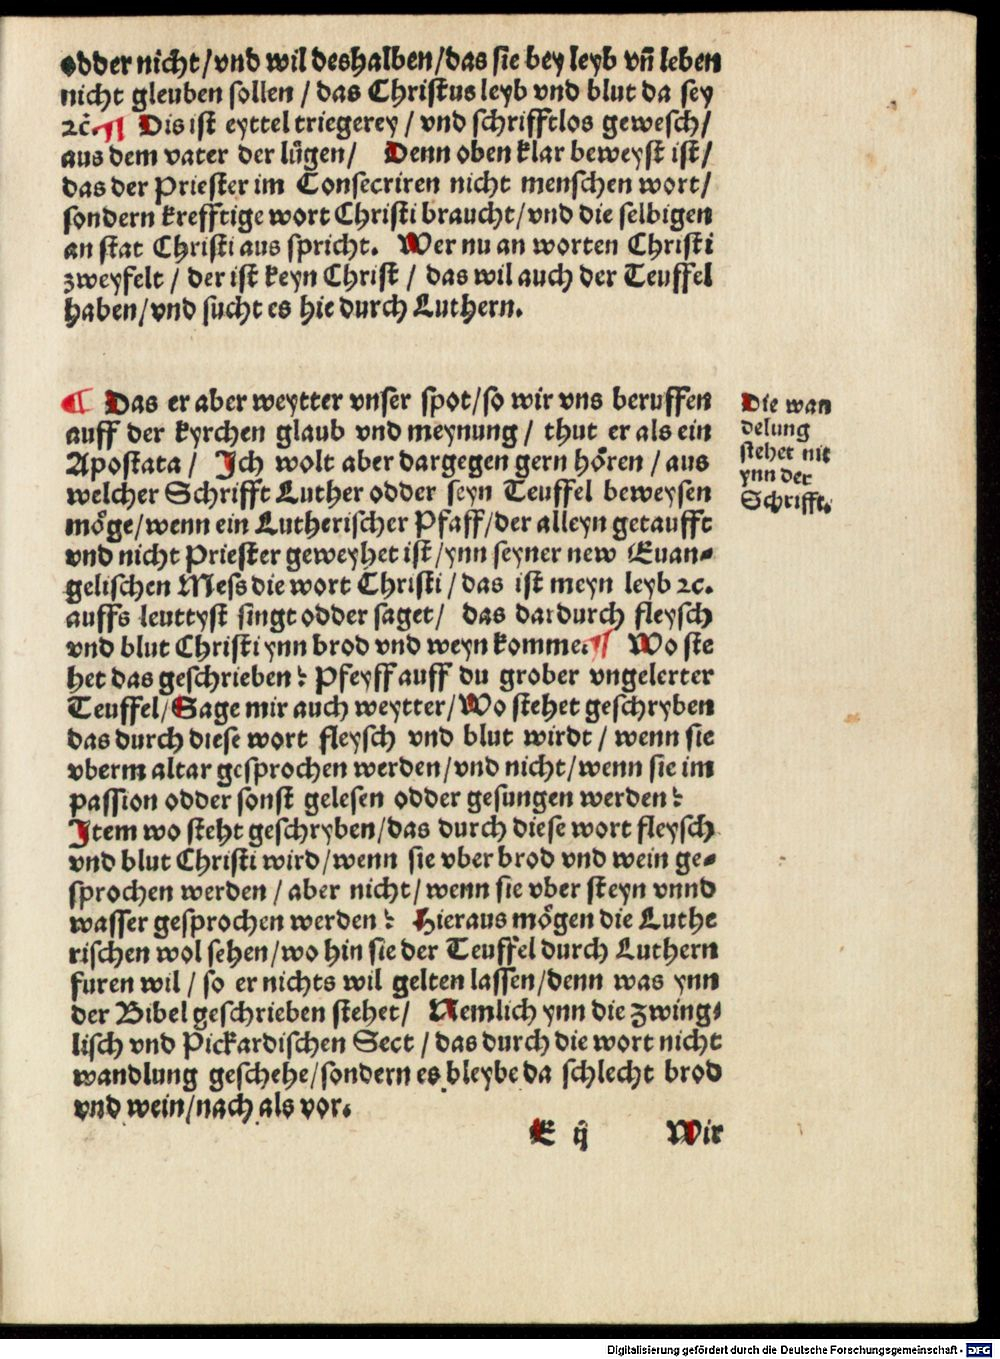 odder nicht/vnd wil deshalben/das sie bey leyb vñ leben
nicht gleuben sollen / das Christus leyb vnd blut da sey
ꝛc̃. ¶ Dis ist eyttel triegerey / vnd schrifftlos gewesch/
aus dem vater der lügen/ Denn oben klar beweyst ist/
das der Priester im Consecriren nicht menschen wort/
sondern krefftige wort Christi braucht/vnd die selbigen
an stat Christi aus spricht. Wer nu an worten Christi
zweyfelt / der ist keyn Christ / das wil auch der Teuffel
haben/vnd sucht es hie durch Luthern.
¶ Das er aber weytter vnser spot/so wir vns beruffen
auff der kyrchen glaub vnd meynung / thut er als ein
Apostata / Ich wolt aber dargegen gern hören / aus
welcher Schrifft Luther odder seyn Teuffel beweysen
möge/wenn ein Lutherischer Pfaff/der alleyn getaufft
vnd nicht Priester geweyhet ist/ynn seyner new Euan-
gelischen Mess die wort Christi / das ist meyn leyb ꝛc.
auffs leuttyst singt odder saget/ das dardurch fleysch
vnd blut Christi ynn brod vnd weyn komme. ¶ Wo ste
het das geschrieben? Pfeyff auff du grober vngelerter
Teuffel/Sage mir auch weytter/Wo stehet geschryben
das durch diese wort fleysch vnd blut wirdt / wenn sie
vberm altar gesprochen werden/vnd nicht/wenn sie im
passion odder sonst gelesen odder gesungen werden?
Item wo steht geschryben/das durch diese wort fleysch
vnd blut Christi wird/wenn sie vber brod vnd wein ge-
sprochen werden / aber nicht/wenn sie vber steyn vnnd
wasser gesprochen werden? Hieraus mögen die Luthe
rischen wol sehen/wo hin sie der Teuffel durch Luthern
furen wil / so er nichts wil gelten lassen/denn was ynn
der Bibel geschrieben stehet/ Nemlich ynn die zwing-
lisch vnd Pickardischen Sect / das durch die wort nicht
wandlung geschehe/sondern es bleybe da schlecht brod
vnd wein/nach als vor.
E ij Wir
Die wan
delung
stehet nit
ynn der
Schrifft.
Digitalisierung gefördert durch die Deutsche Forschungsgemeinschaft - DFG